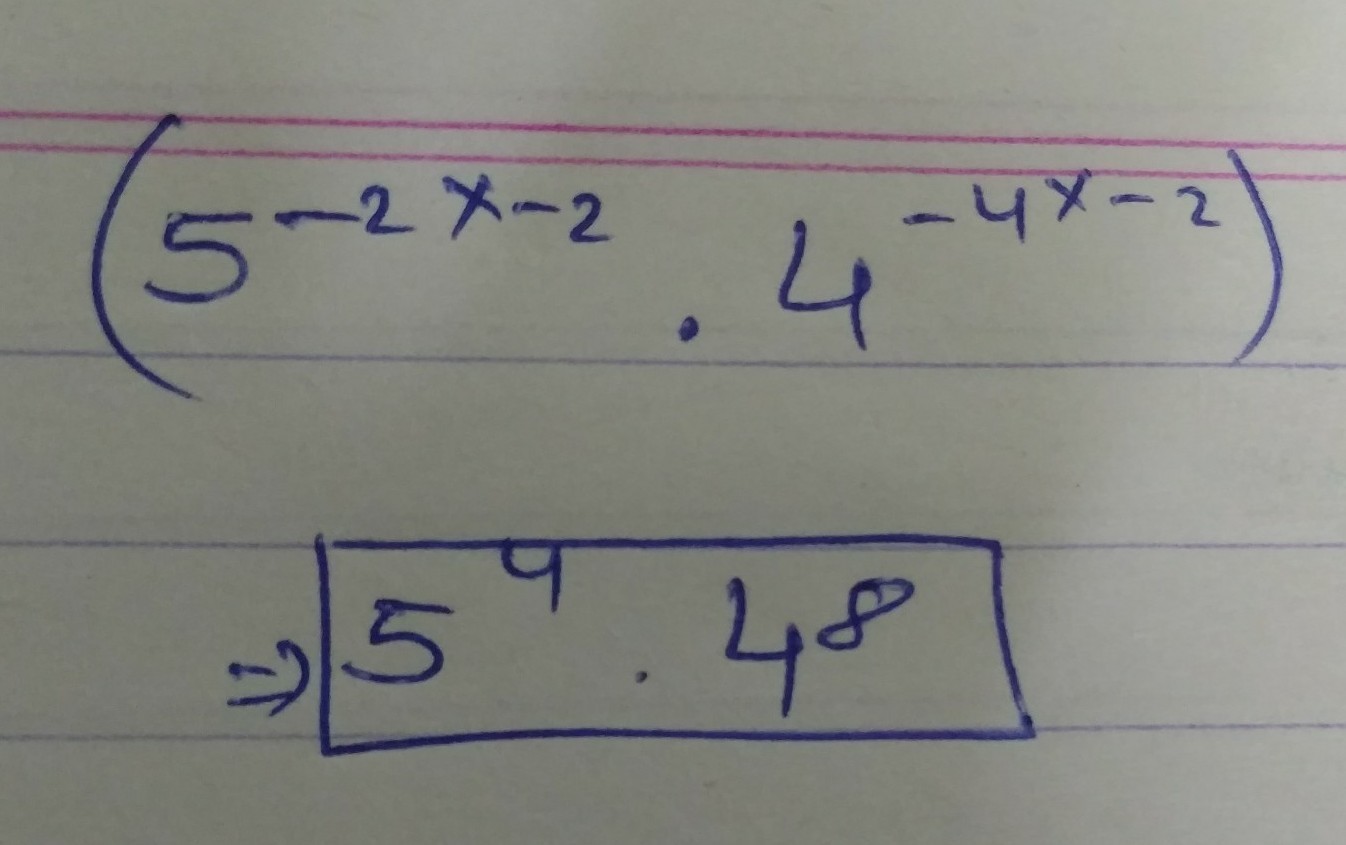 (5⁻²ˣ⁻² . 4⁻⁴ˣ⁻²)
⇒ 5⁴ . 4⁸